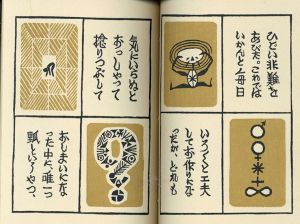 ひどい非難を
あびた。これでは
いかんと毎日
いろ〱と工夫
してお作りにな
ったが、どれも
気にいらぬと
おっしゃって
捻りつぶして
おしまいにな
った中に、唯一
瓢といふやつ、